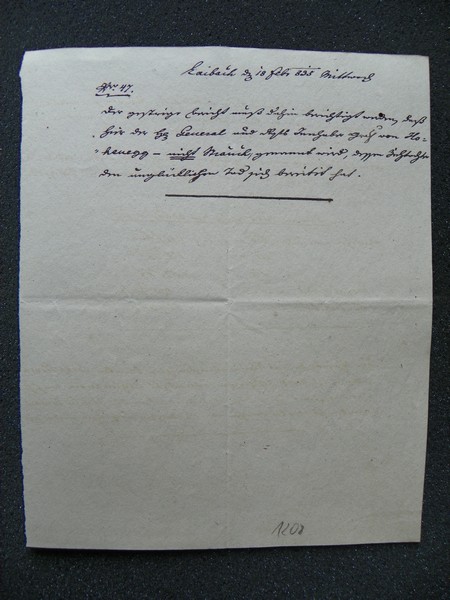 Laibach d 18 Febr 835 Mittwoch
Nr. 47.
Der gestrige Bericht muß dahin berichtigt werden, daß
hier der H General und Rgts Inhaber Graf von Ho-
henegg – nicht Mäuel, genannt wird, dessen Tochter
den unglücklichen Tod sich bereitet hat.
1208